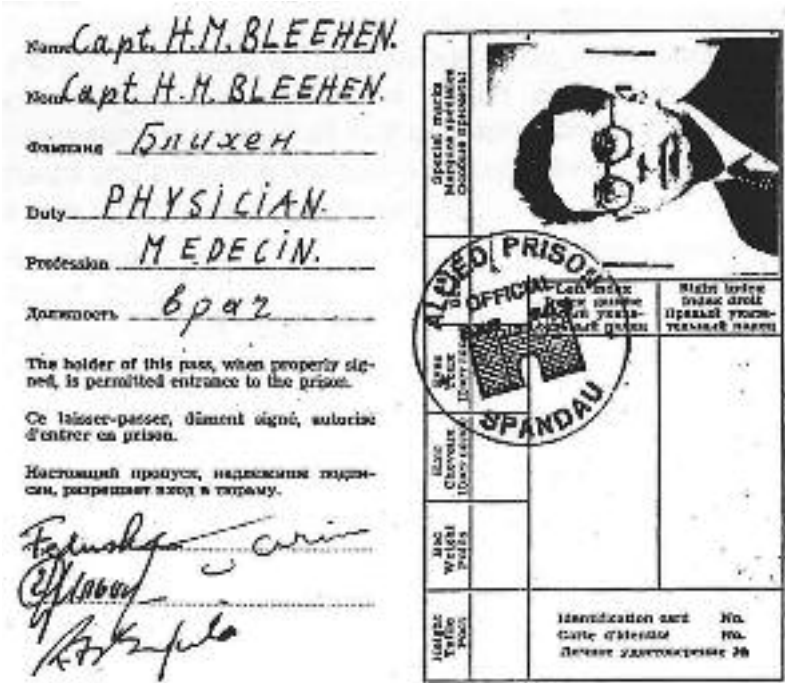 Name Capt. H.M. BLEEHEN.
Nom Capt. H.M. BLEEHEN.
Фамилия Блихен
Duty PHYSICIAN.
Profession MEDECIN.
Должность врач
The holder of this pass, when properly sig-
ned, is permitted entrance to the prison.
Ce laisser-passer, dûment signé, autorise
d'entrer en prison.
Настоящий пропуск, надлежаще подпи-
сан, разрешает вход в тюрьму.
Special marks
Marques spéciales
Особые приметы
ALLIED PRISON
OFFICIAL
SPANDAU
Left index
Index gauche
Right index
Index droit
Правый указа-
тельный палец
Eyes
Yeux
Цвет глаз
Hair
Cheveux
Цвет волос
Weight
Poids
Вес
Height
Taille
Рост
Identification card No.
Carte d'identité No.
Личное удостоверение №